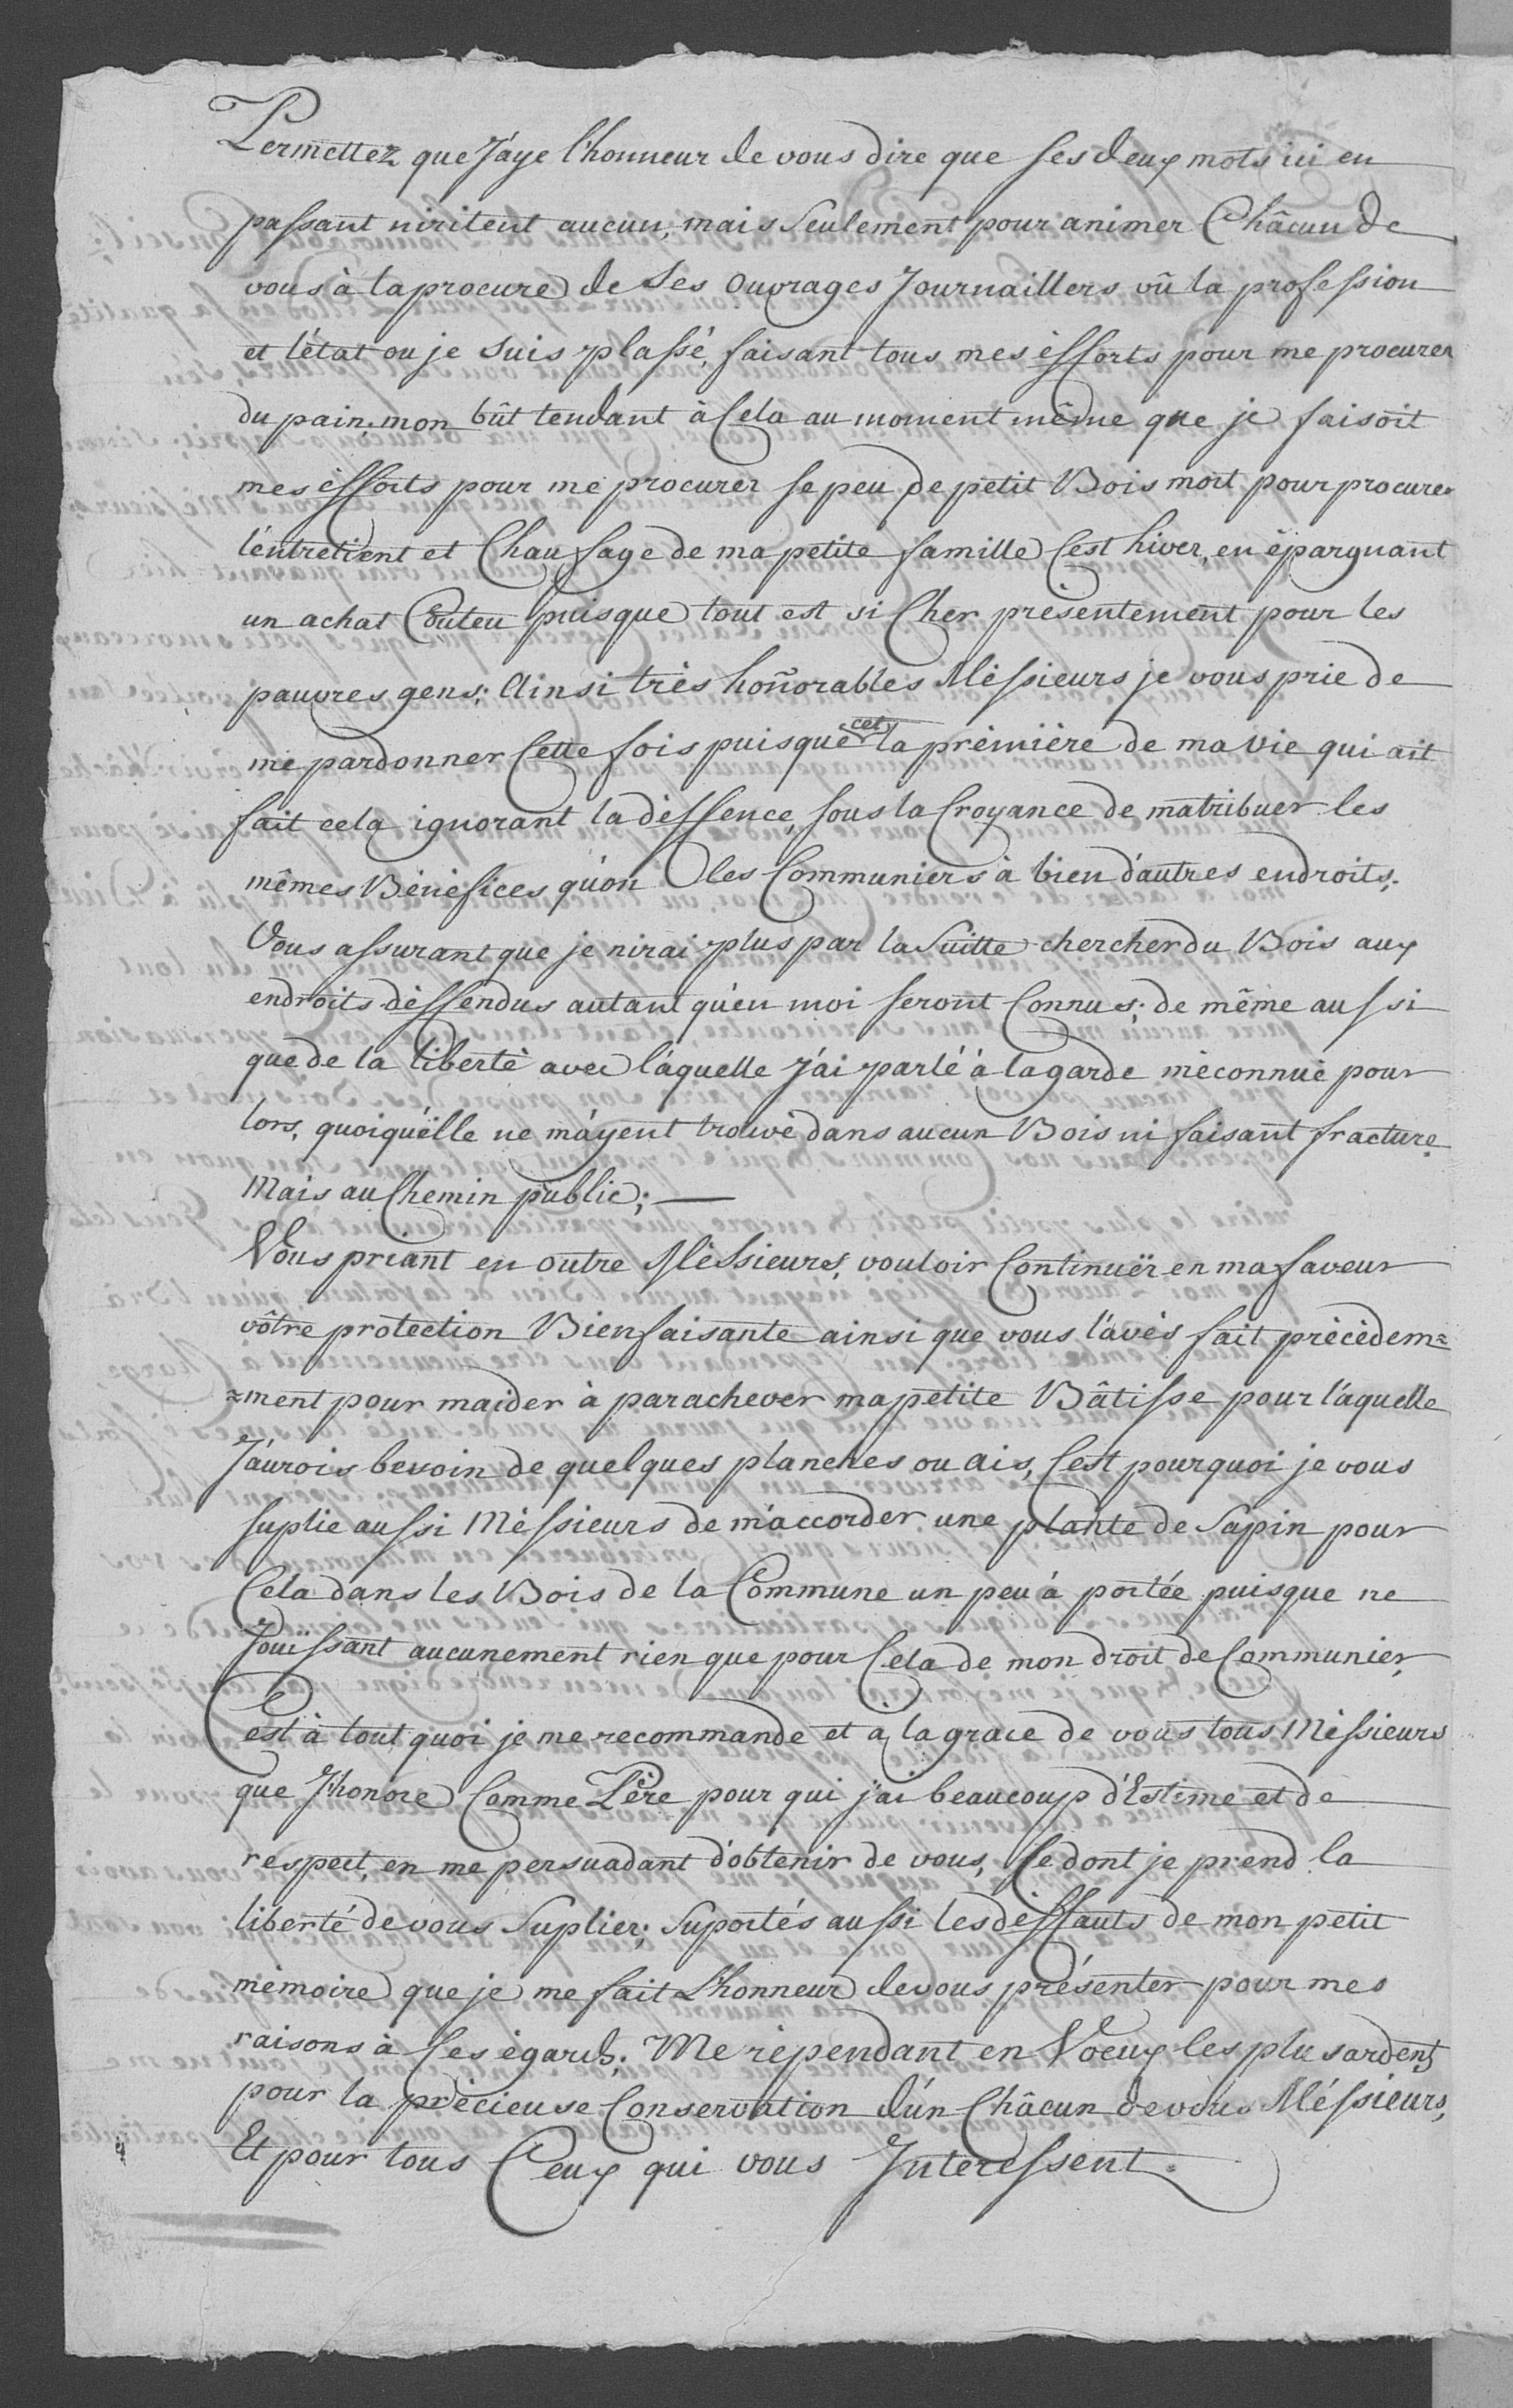 Permettez que J'aye l'honneur de vous dire que ses deux mots ici en
passant niritent aucun, mais Seulement pour animer Châcun de
vous à la procure de Ses Ouvrages Journaillers vû la profession
et l'état ou je Suis plassé, faisant tous mes éfforts pour me procurer
du pain. mon bût tendant à Cela au moment même que je faisoit
mes éfforts pour me procurer se peu de petit Bois mort pour procurer
l'entretient et Chaufage de ma petite famille Cest hiver, en épargnant
un achat Couteu puisque tout est si Cher présentement pour les
pauvres gens; Ainsi très honnorables Méssieurs je vous prie de
me pardonner Cette fois puisque cet la prémière de ma vie qui ait
fait cela ignorant la déffence, sous la Croyance de m'atribuer les
mêmes Bénéfices qu'on les Communiers à bien d'autres endroits;
Vous assurant que je n'irai plus par la Suitte chercher du Bois aux
endroits déffendus autant qu'en moi seront Connus; de même aussi
que de la liberté avec láquelle J'ai parlé à la garde méconnuë pour
lors, quoiqu'ëlle ne m'ayent trouvé dans aucun Bois ni faisant fracture
Mais au Chemin public;
Vous priant en outre Méssieurs, vouloir Continuër en ma faveur
vôtre protection Bienfaisante ainsi que vous l'avés fait précédem=
=ment pour maider à parachever ma petite Bâtisse pour láquelle
J'aurois besoin de quelques planches ou ais, Cest pourquoi je vous
suplie aussi Méssieurs de m'accorder une plante de Sapin pour
Cela dans les Bois de la Commune un peu à portée puisque ne
Jouïssant aucunement rien que pour Cela de mon droit de Communier,
C'est à tout quoi je me recommande et à la grace de vous tous Méssieurs
que J'honore Comme Père pour qui j'ai beaucoup d'Estime et de
respect, en me persuadant d'obtenir de vous, Ce dont je prend la
liberté de vous Suplier; Suportés aussi les déffauts de mon petit
mémoire que je me fait L'honneur de vous présenter pour mes
raisons à Ses égards; Me répendant en Voeux les plus ardents
pour la précieuse Conservation d'un Châcun de vous Méssieurs,
Et pour tous Ceux qui vous Interessent.